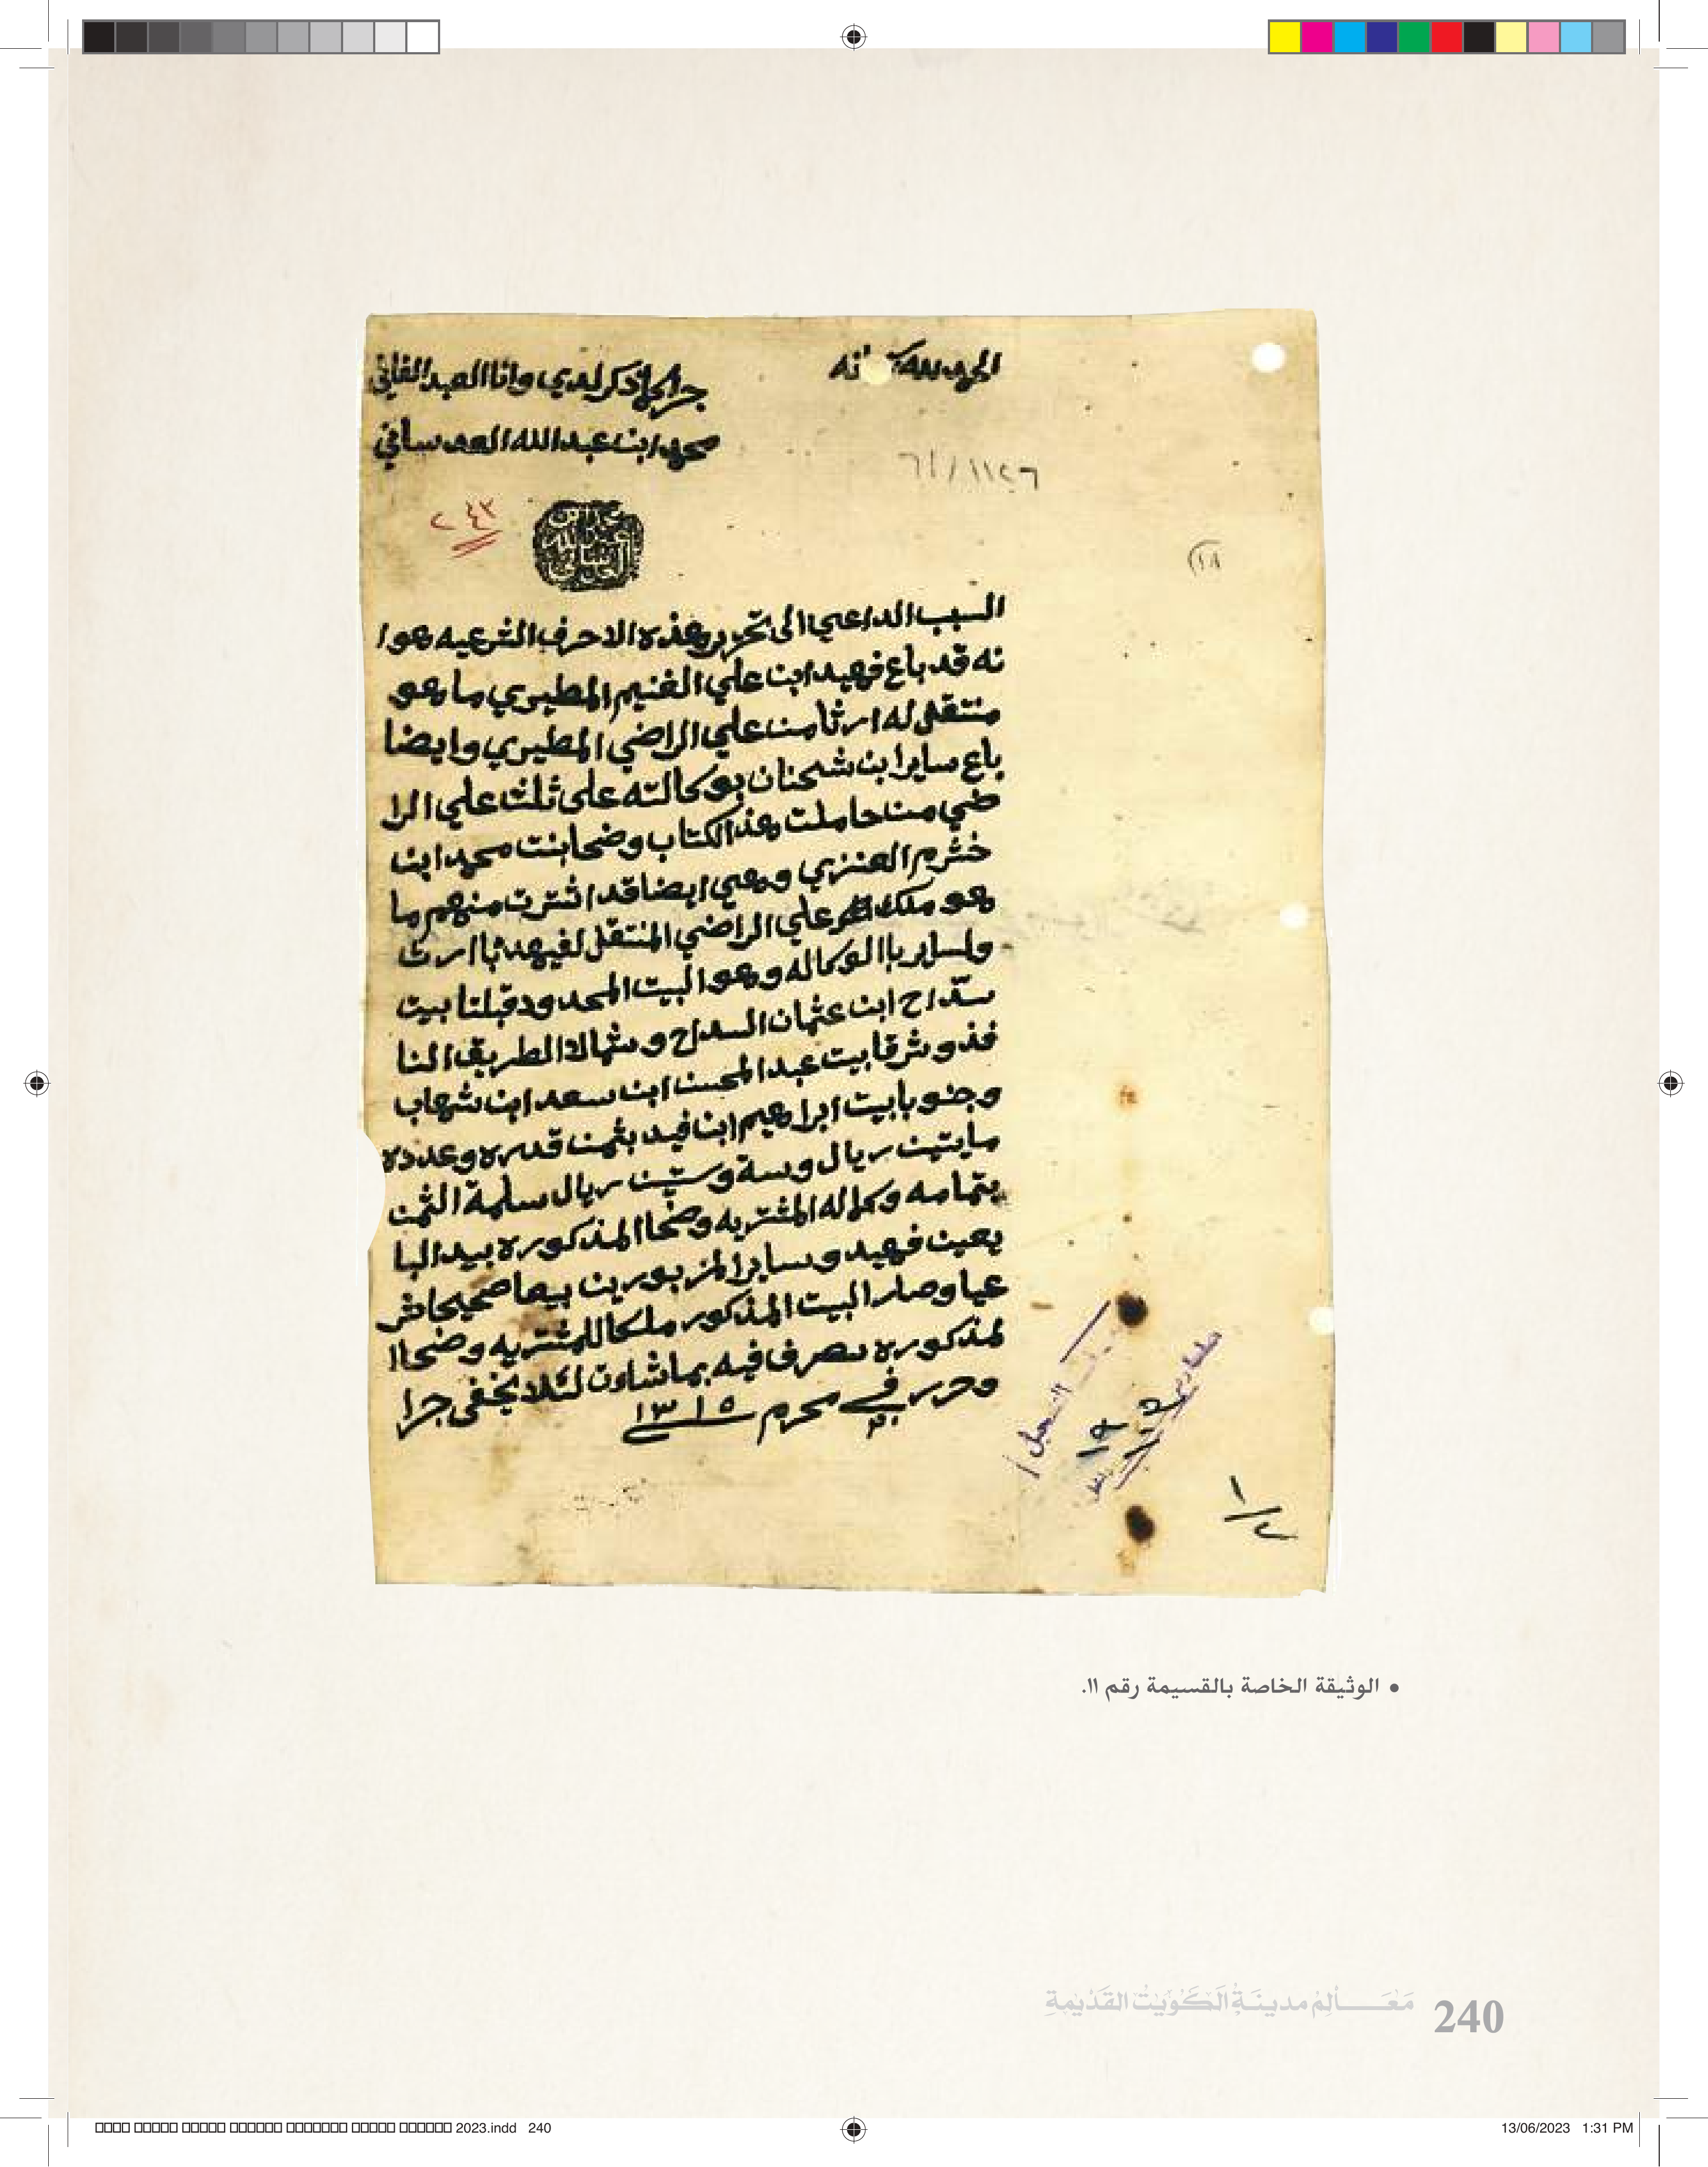 الحمد لله
جرا ما ذكر لدي وانا العبد الفاني
محمد ابن عبدالله العدساني
٢٤٣
السبب الداعي الى تحرير هذه الاحرف الشرعيه هو ا
نه قد باع فهيد ابن علي الغنيم المطيري ما هو
منتقل له ارثا من علي الراضي المطيري وايضا
باع ساير ابن شحنان بوكالته على ثلث علي الرا
ضي من حاملت هذا الكتاب وضحا بنت محمد ابن
خثرم العنزي وهي ايضا قد اشترت منهم ما
هو ملك علي الراضي المنتقل لفيهد باارث
ولساير باالوكاله وهو البيت المحدود قبلتا بيت
سداح ابن عثمان السداح وشمالا الطريق النا
فذ وشرقا بيت عبدالمحسن ابن سعد ابن شهاب
وجنوبا بيت ابراهيم ابن فيد بثمن قدره وعدده
مايتين ريال وستة وستين ريال سلمة الثمن
بتمامه وكماله المشتريه وضحا المذكوره بيد البا
يعين فهيد وساير المزبورين بيعا صحيحا شر
عيا وصار البيت المذكور ملكا للمشتريه وضحا ا
لمذكوره تصرف فيه بما شاءت لئلا يخفى جرا
وحرر في ٣ محرم ١٣١٥
١/٢
• الوثيقة الخاصة بالقسيمة رقم ١١.
مَعَـالِمُ مدينَةِ الْكُوَيْتْ القَدِيمَةِ
240
2023.indd 240
13/06/2023 1:31 PM